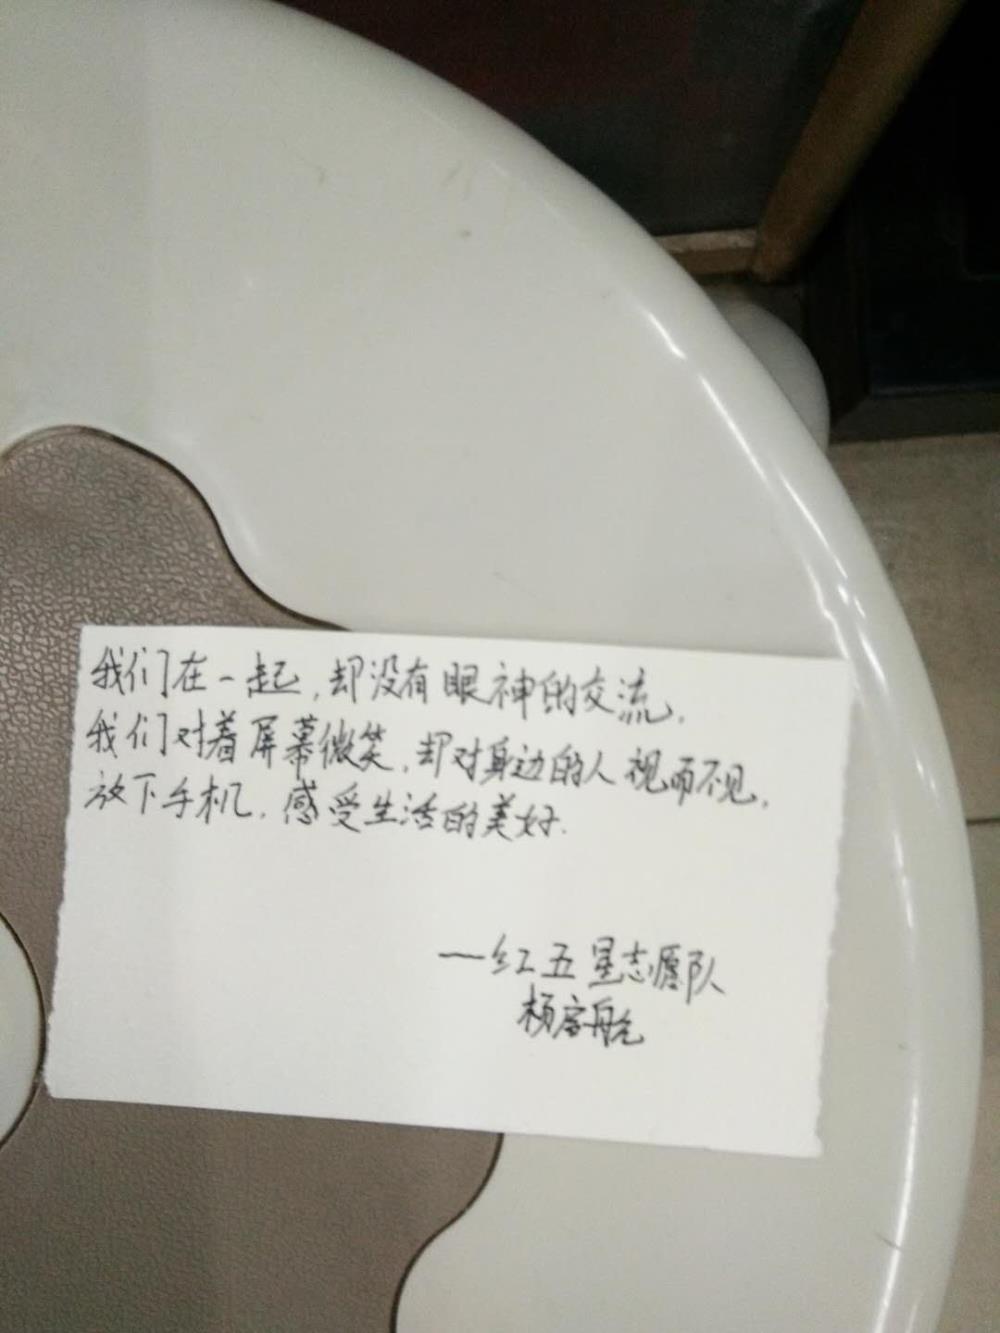 我们在一起，却没有眼神的交流．
我们对着屏幕微笑，却对身边的人视而不见．
放下手机，感受生活的美好．
—红五星志愿队
杨富舱